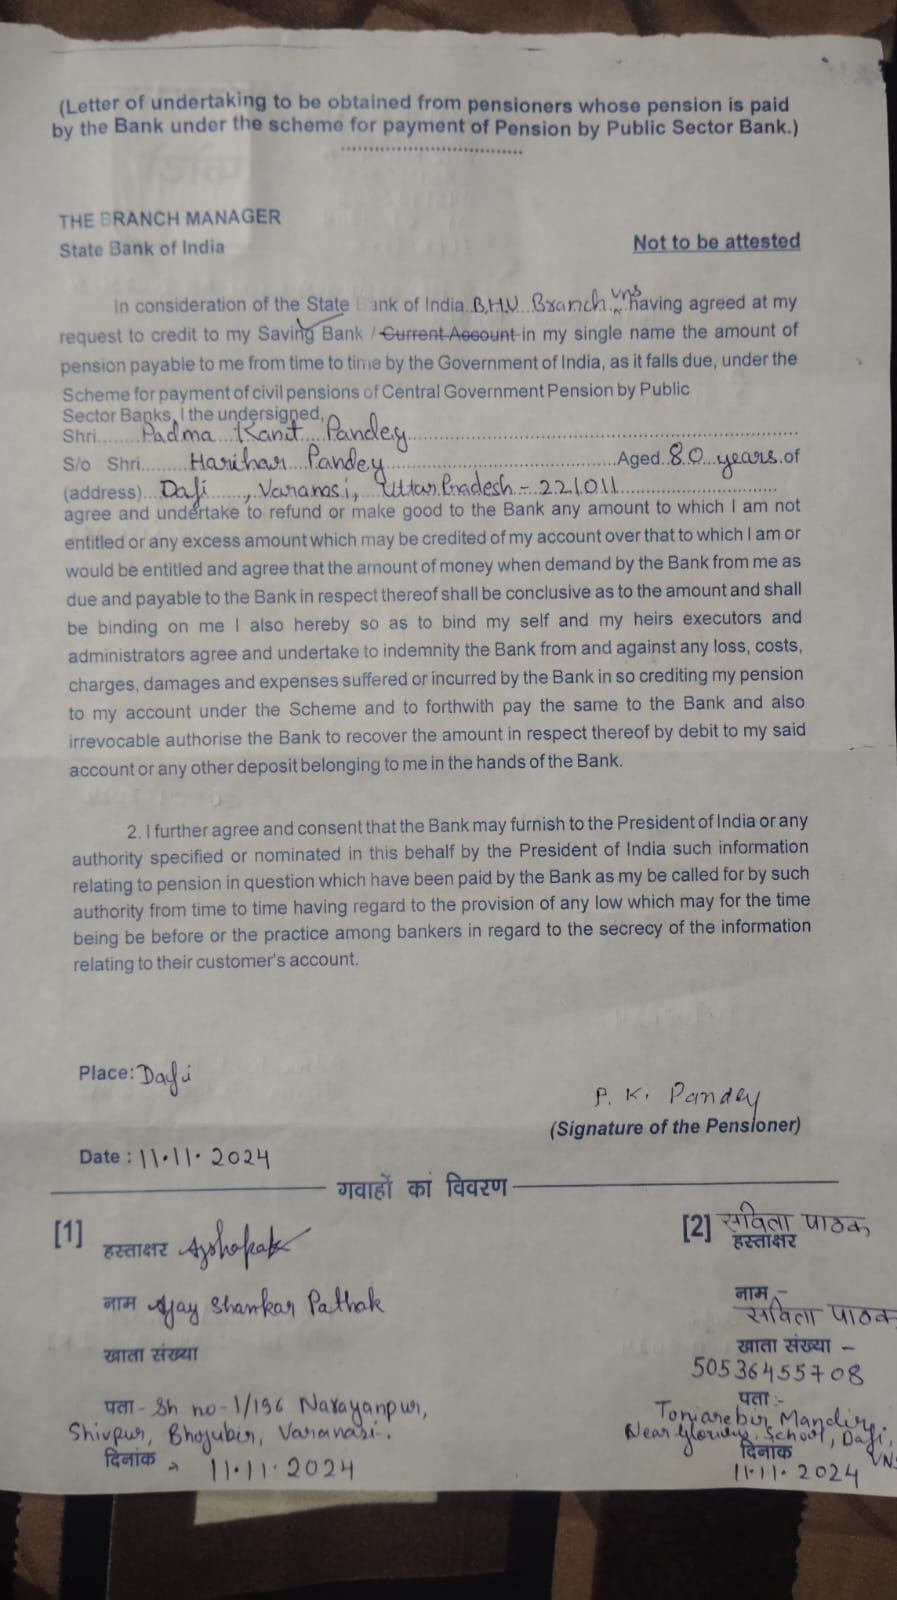 (Letter of undertaking to be obtained from pensioners whose pension is paid
by the Bank under the scheme for payment of Pension by Public Sector Bank.)
THE BRANCH MANAGER
State Bank of India
Not to be attested
In consideration of the State Bank of India B.H.U Branch vns having agreed at my
request to credit to my Saving Bank / Current Account in my single name the amount of
pension payable to me from time to time by the Government of India, as it falls due, under the
Scheme for payment of civil pensions of Central Government Pension by Public
Sector Banks, I the undersigned,
Shri........Padma Kant Pandey
S/o Shri........Harihar Pandey........Aged 80 years of
(address)...Dafi......, Varanasi, Uttar Pradesh - 221011
agree and undertake to refund or make good to the Bank any amount to which I am not
entitled or any excess amount which may be credited of my account over that to which I am or
would be entitled and agree that the amount of money when demand by the Bank from me as
due and payable to the Bank in respect thereof shall be conclusive as to the amount and shall
be binding on me I also hereby so as to bind my self and my heirs executors and
administrators agree and undertake to indemnity the Bank from and against any loss, costs,
charges, damages and expenses suffered or incurred by the Bank in so crediting my pension
to my account under the Scheme and to forthwith pay the same to the Bank and also
irrevocable authorise the Bank to recover the amount in respect thereof by debit to my said
account or any other deposit belonging to me in the hands of the Bank.
2. I further agree and consent that the Bank may furnish to the President of India or any
authority specified or nominated in this behalf by the President of India such information
relating to pension in question which have been paid by the Bank as my be called for by such
authority from time to time having regard to the provision of any low which may for the time
being be before or the practice among bankers in regard to the secrecy of the information
relating to their customer's account.
Place: Dafi
P. K. Pandey
(Signature of the Pensioner)
Date : 11.11.2024
गवाहों का विवरण
[1]
हस्ताक्षर
नाम Ajay Shankar Pathak
खाता संख्या
पता - Sh no-1/196 Narayanpur,
Shivpur, Bhojubir, Varanasi.
दिनांक → 11.11.2024
[2] सविता पाठक
हस्ताक्षर
नाम -
सविता पाठक
खाता संख्या -
50536455708
पता :-
Mandir,
Near School, Dafi,
VNS
दिनांक
11.11.2024